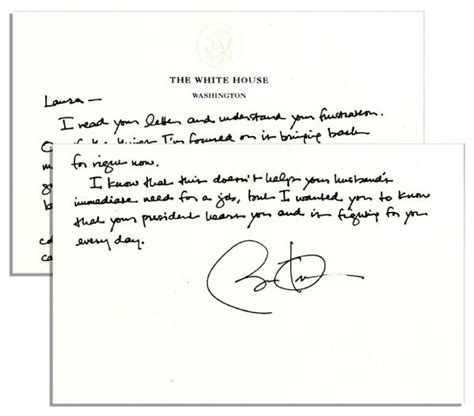 THE WHITE HOUSE
WASHINGTON
Laura—
I read your letter and understand your frustration.
I'm focused on is bringing back
for right now.
I know that this doesn't help your husband's
immediate need for a job, but I wanted you to know
that your president hears you and is fighting for you
every day.